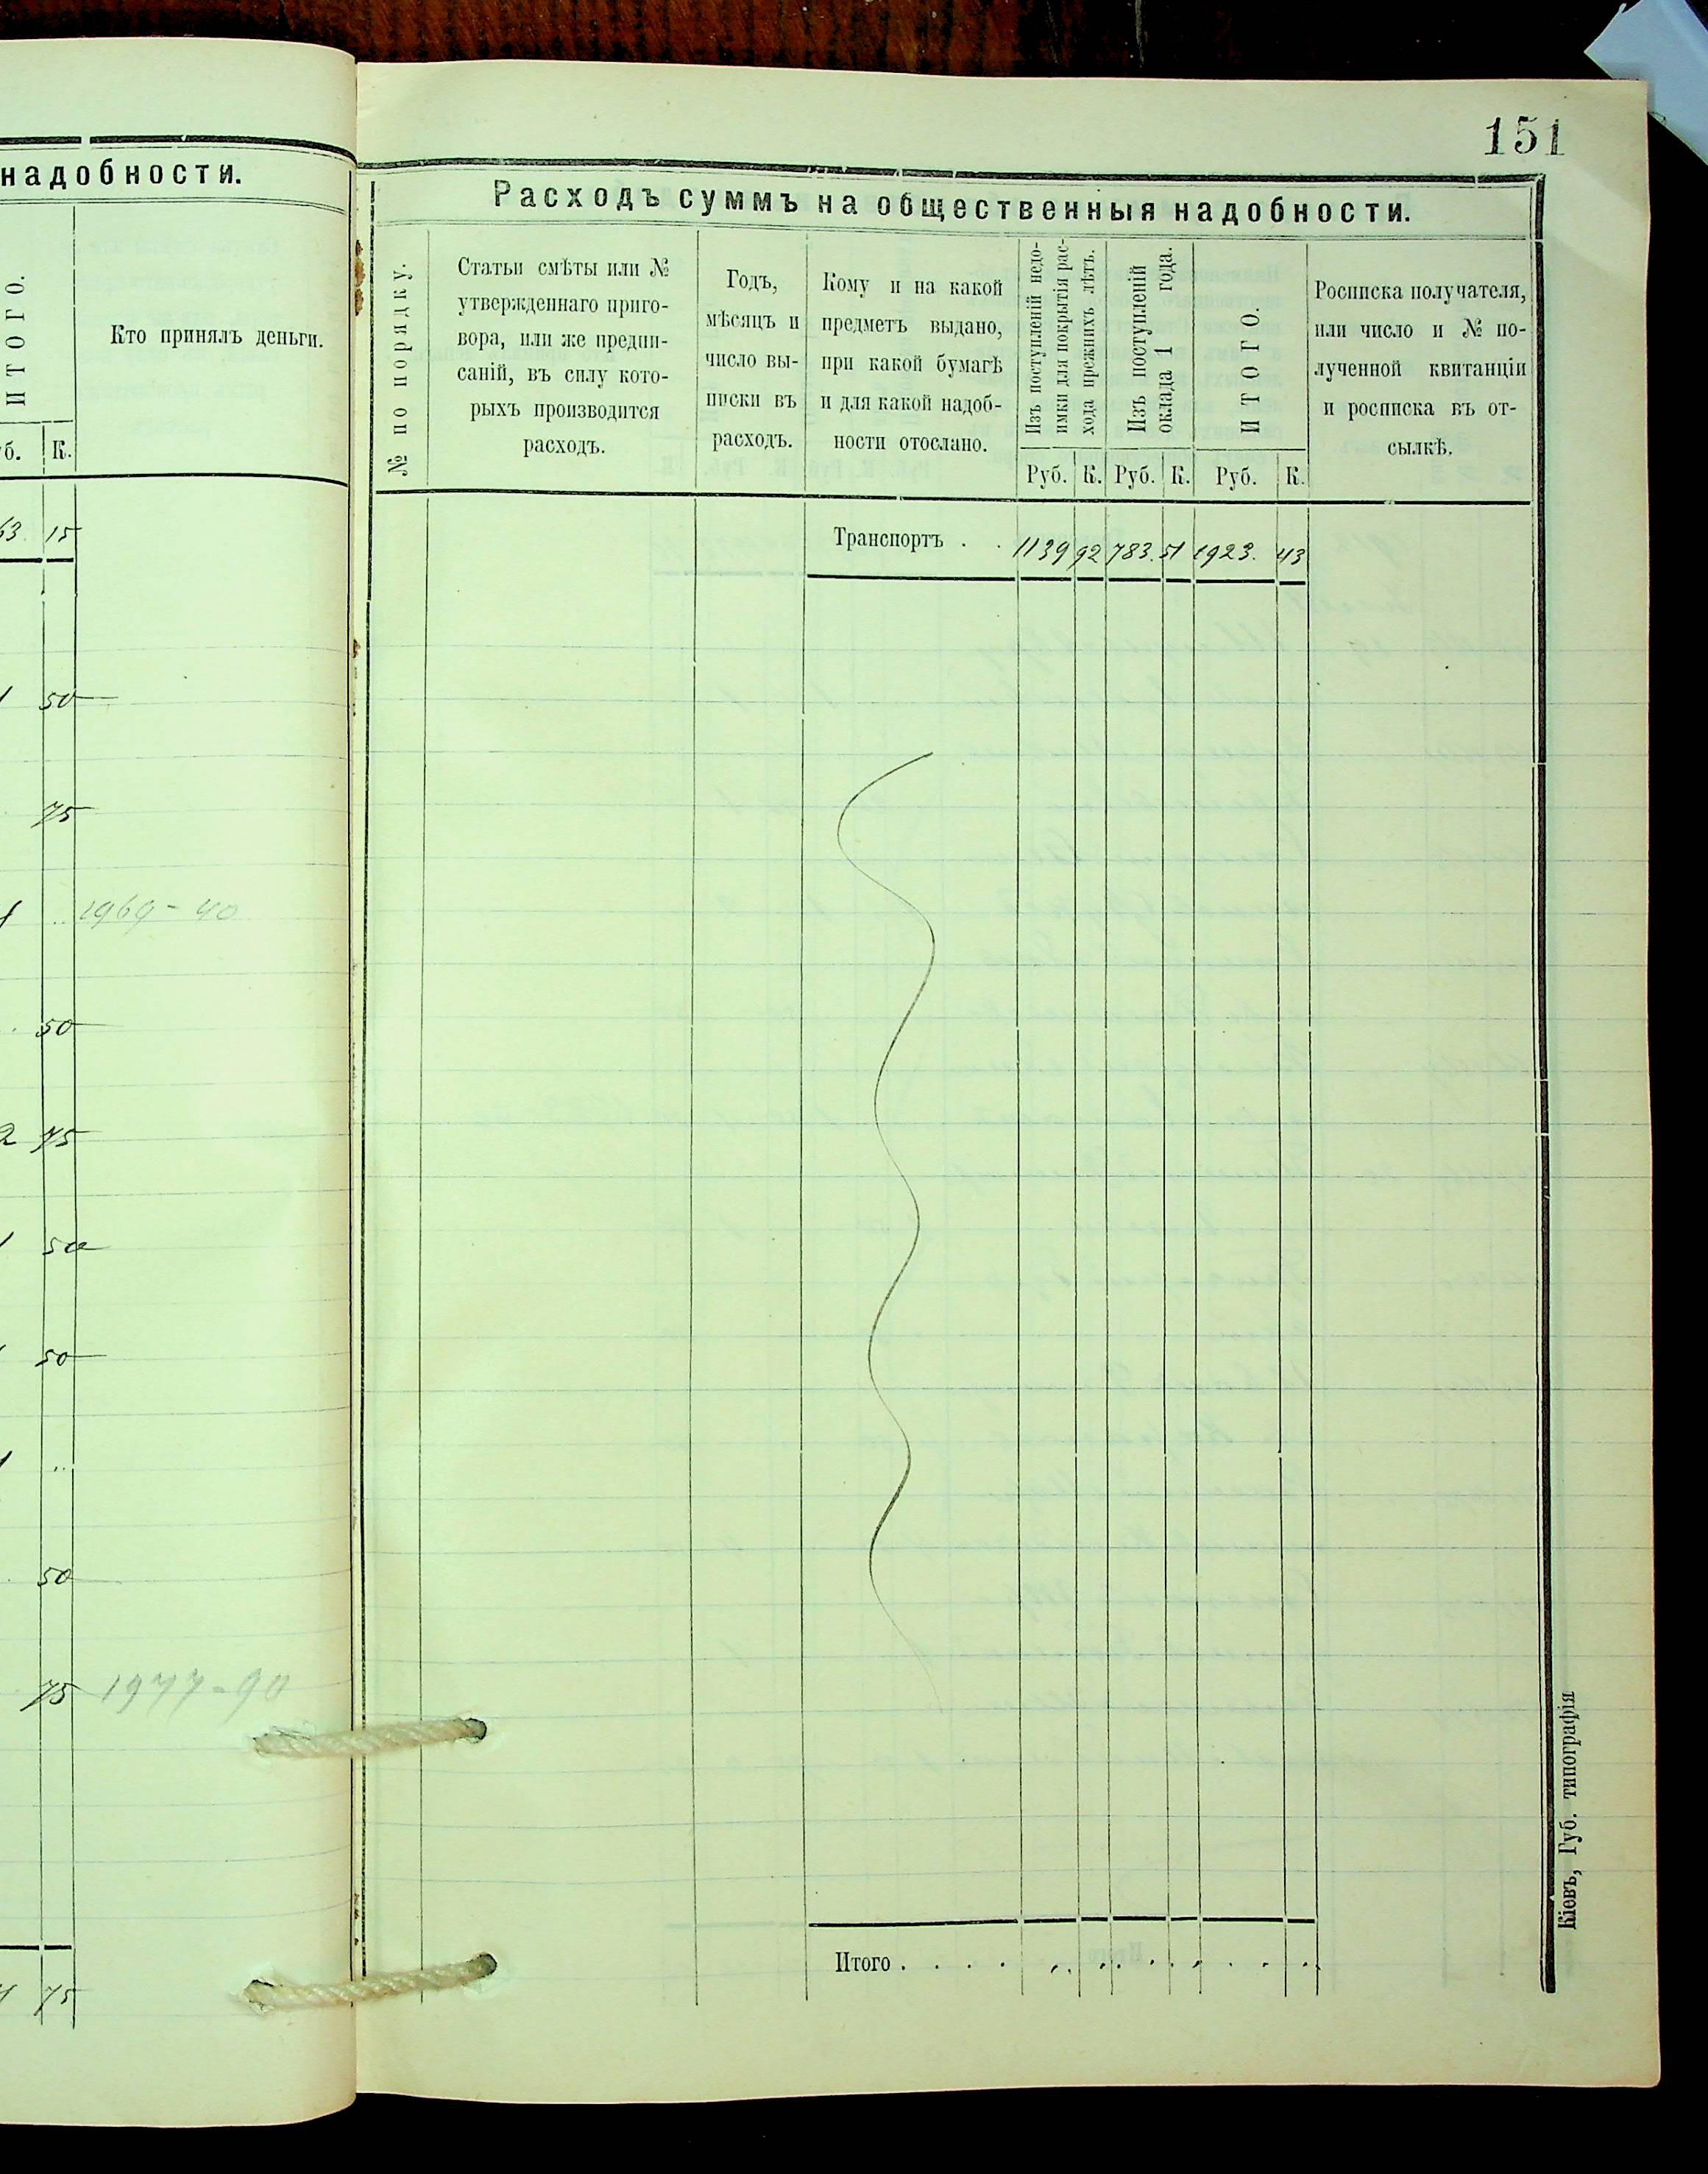 надобности.
ИТОГО.
Кто принялъ деньги.
К.
63. 15
50
75
1969-40
50
2 75
50
50
50
75 1977-90
75
151
Расходъ суммъ на общественныя надобности.
№ по порядку.
Статьи смѣты или №
утвержденнаго приго-
вора, или же предпи-
саній, въ силу кото-
рыхъ производится
расходъ.
Годъ,
мѣсяцъ и
число вы-
писки въ
расходъ.
Кому и на какой
предметъ выдано,
при какой бумагѣ
и для какой надоб-
ности отослано.
Изъ поступленій недо-
имки для покрытія рас-
хода прежнихъ лѣтъ.
Изъ поступленій
оклада 1 года.
ИТОГО.
Росписка получателя,
или число и № по-
лученной квитанціи
и росписка въ от-
сылкѣ.
Руб. К. Руб. К. Руб. К.
Транспортъ . . 1139 92 783. 51 1923. 43
Итого . . . .
Кіевъ, Губ. типографія